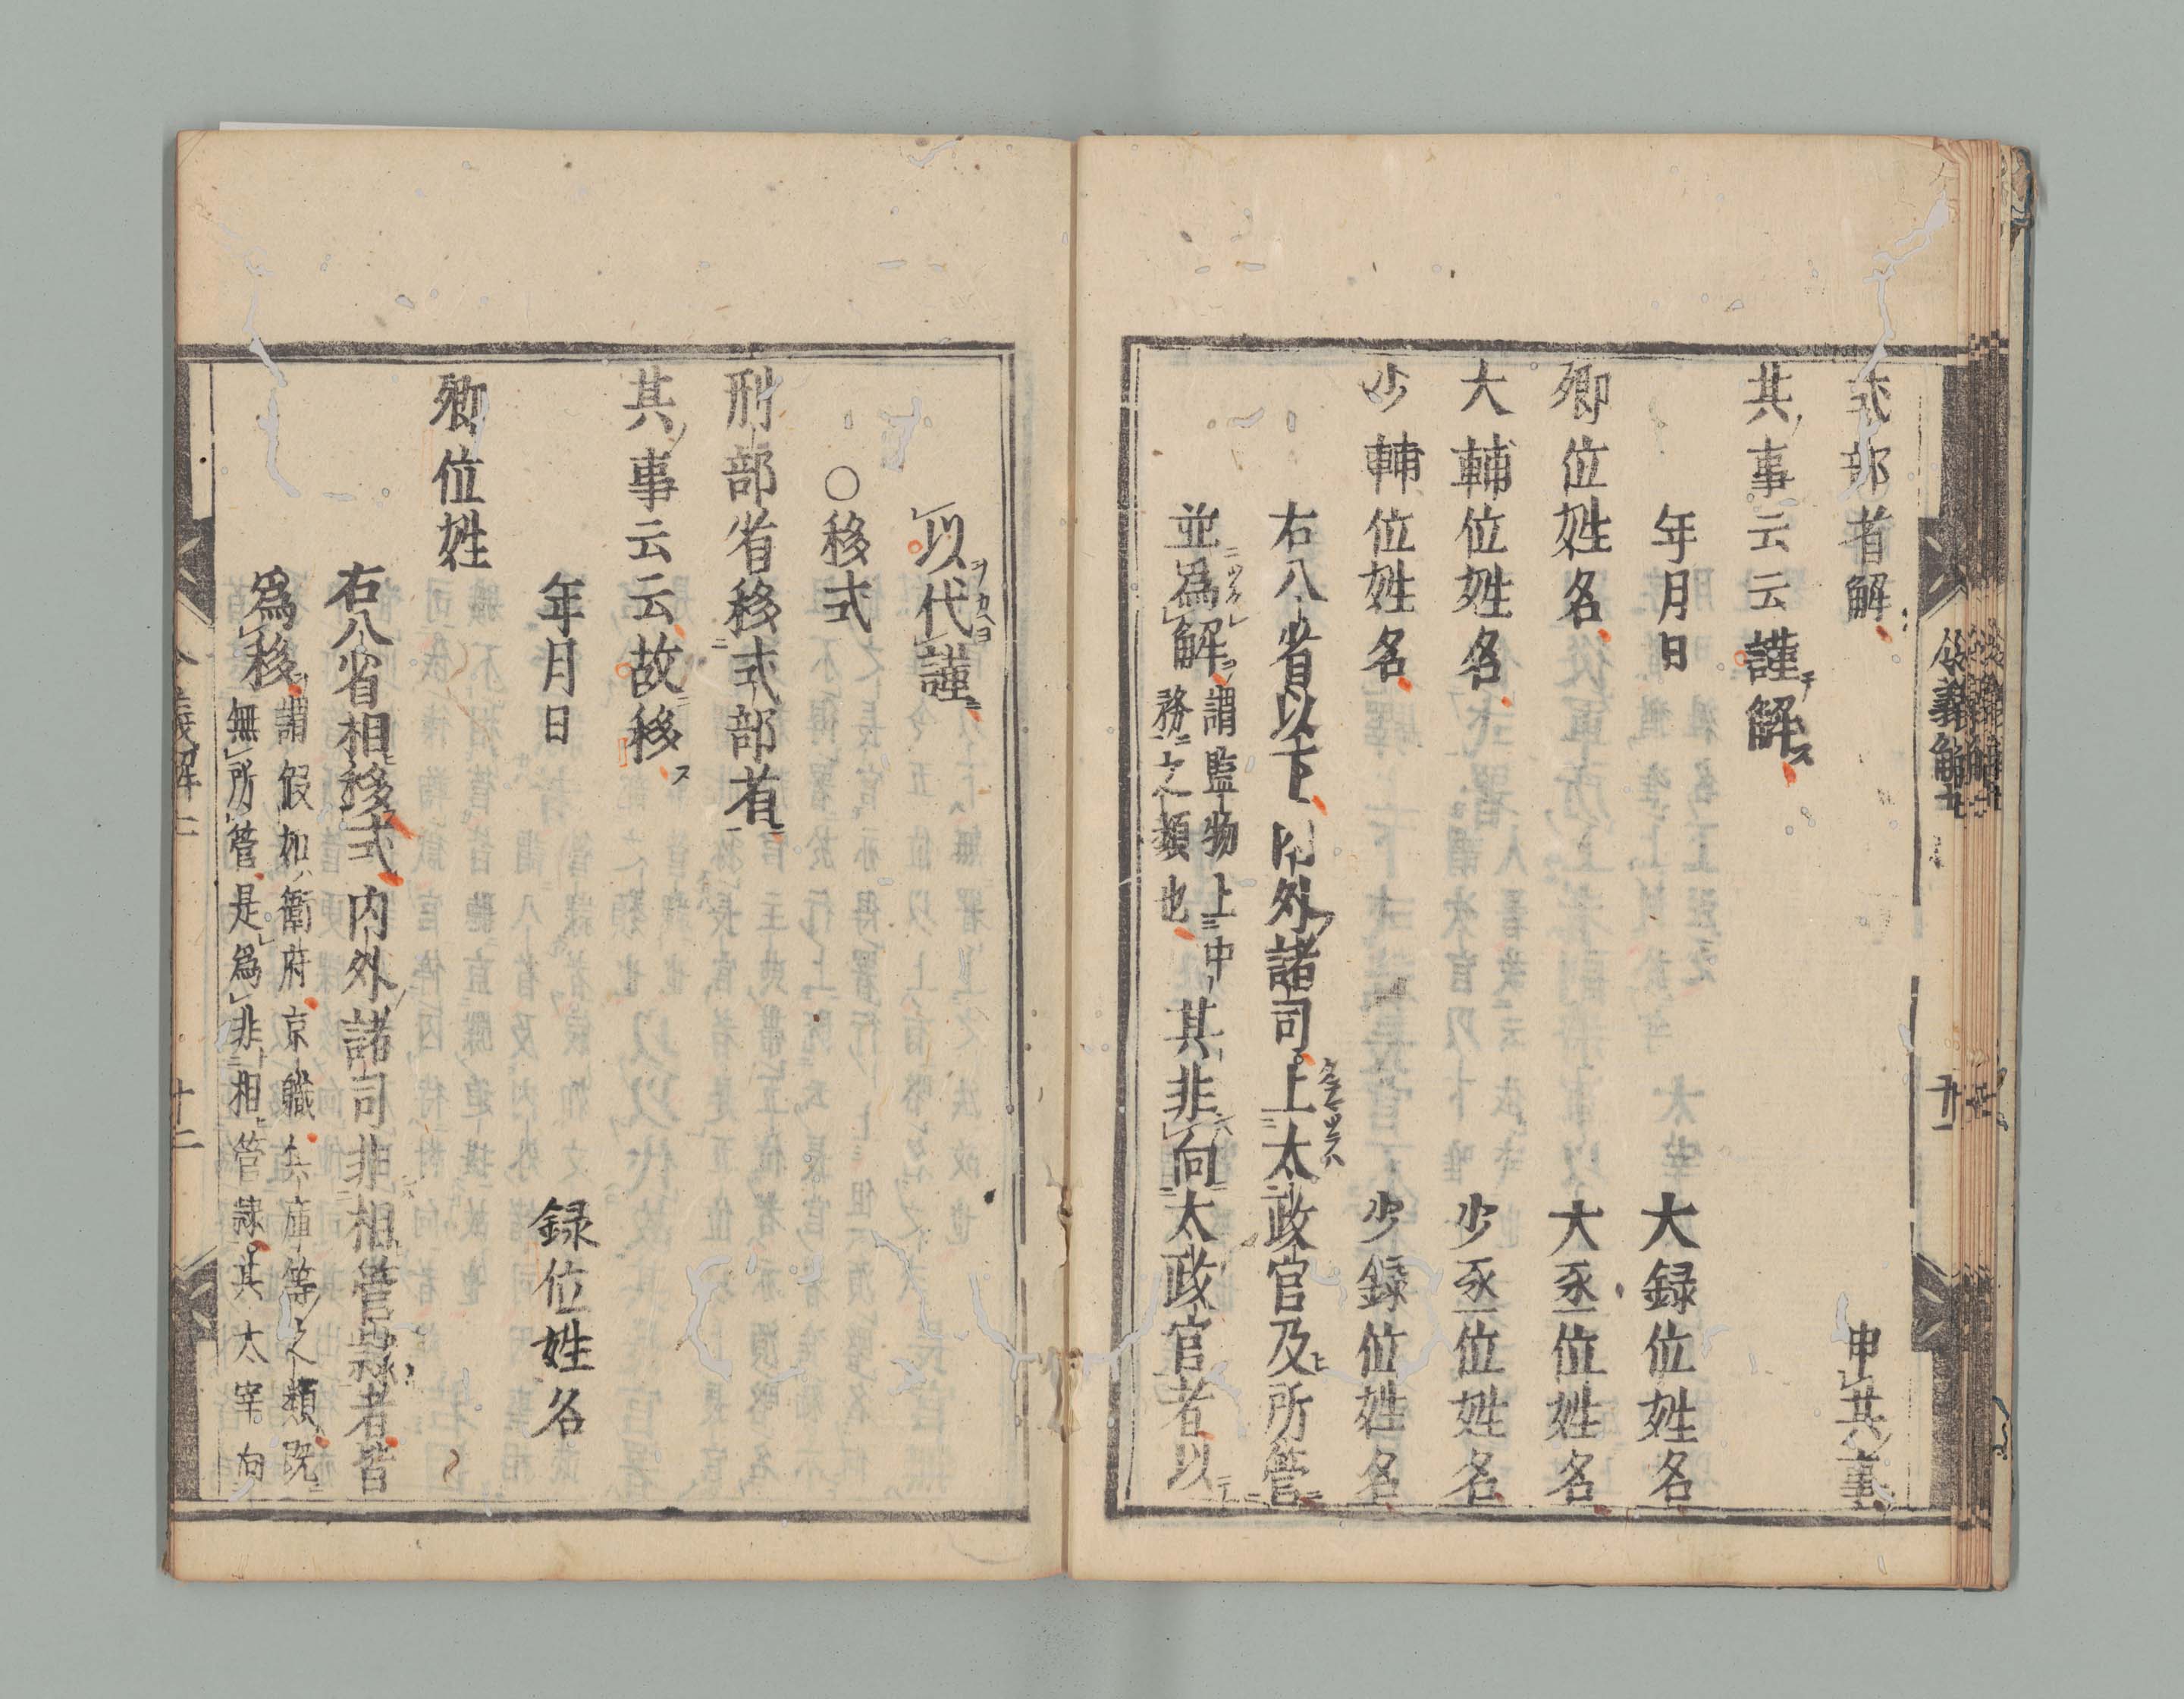 式部省解 申其事
其事云云謹解
年月日 大録位姓名
卿位姓名 大丞位姓名
大輔位姓名 少丞位姓名
少輔位姓名 少録位姓名
右八省以下内外諸司上太政官及所管
並爲解 謂監物上中
務之類也 其非向太政官者以
以代謹
○移式
刑部省移式部省
其事云云故移
年月日 録位姓名
卿位姓
右八省相移式内外諸司非相管隷者皆
爲移 謂假如衛府京職兵庫等之類既
無所管是爲非相管隷其太宰向
令義解七
十一
十二